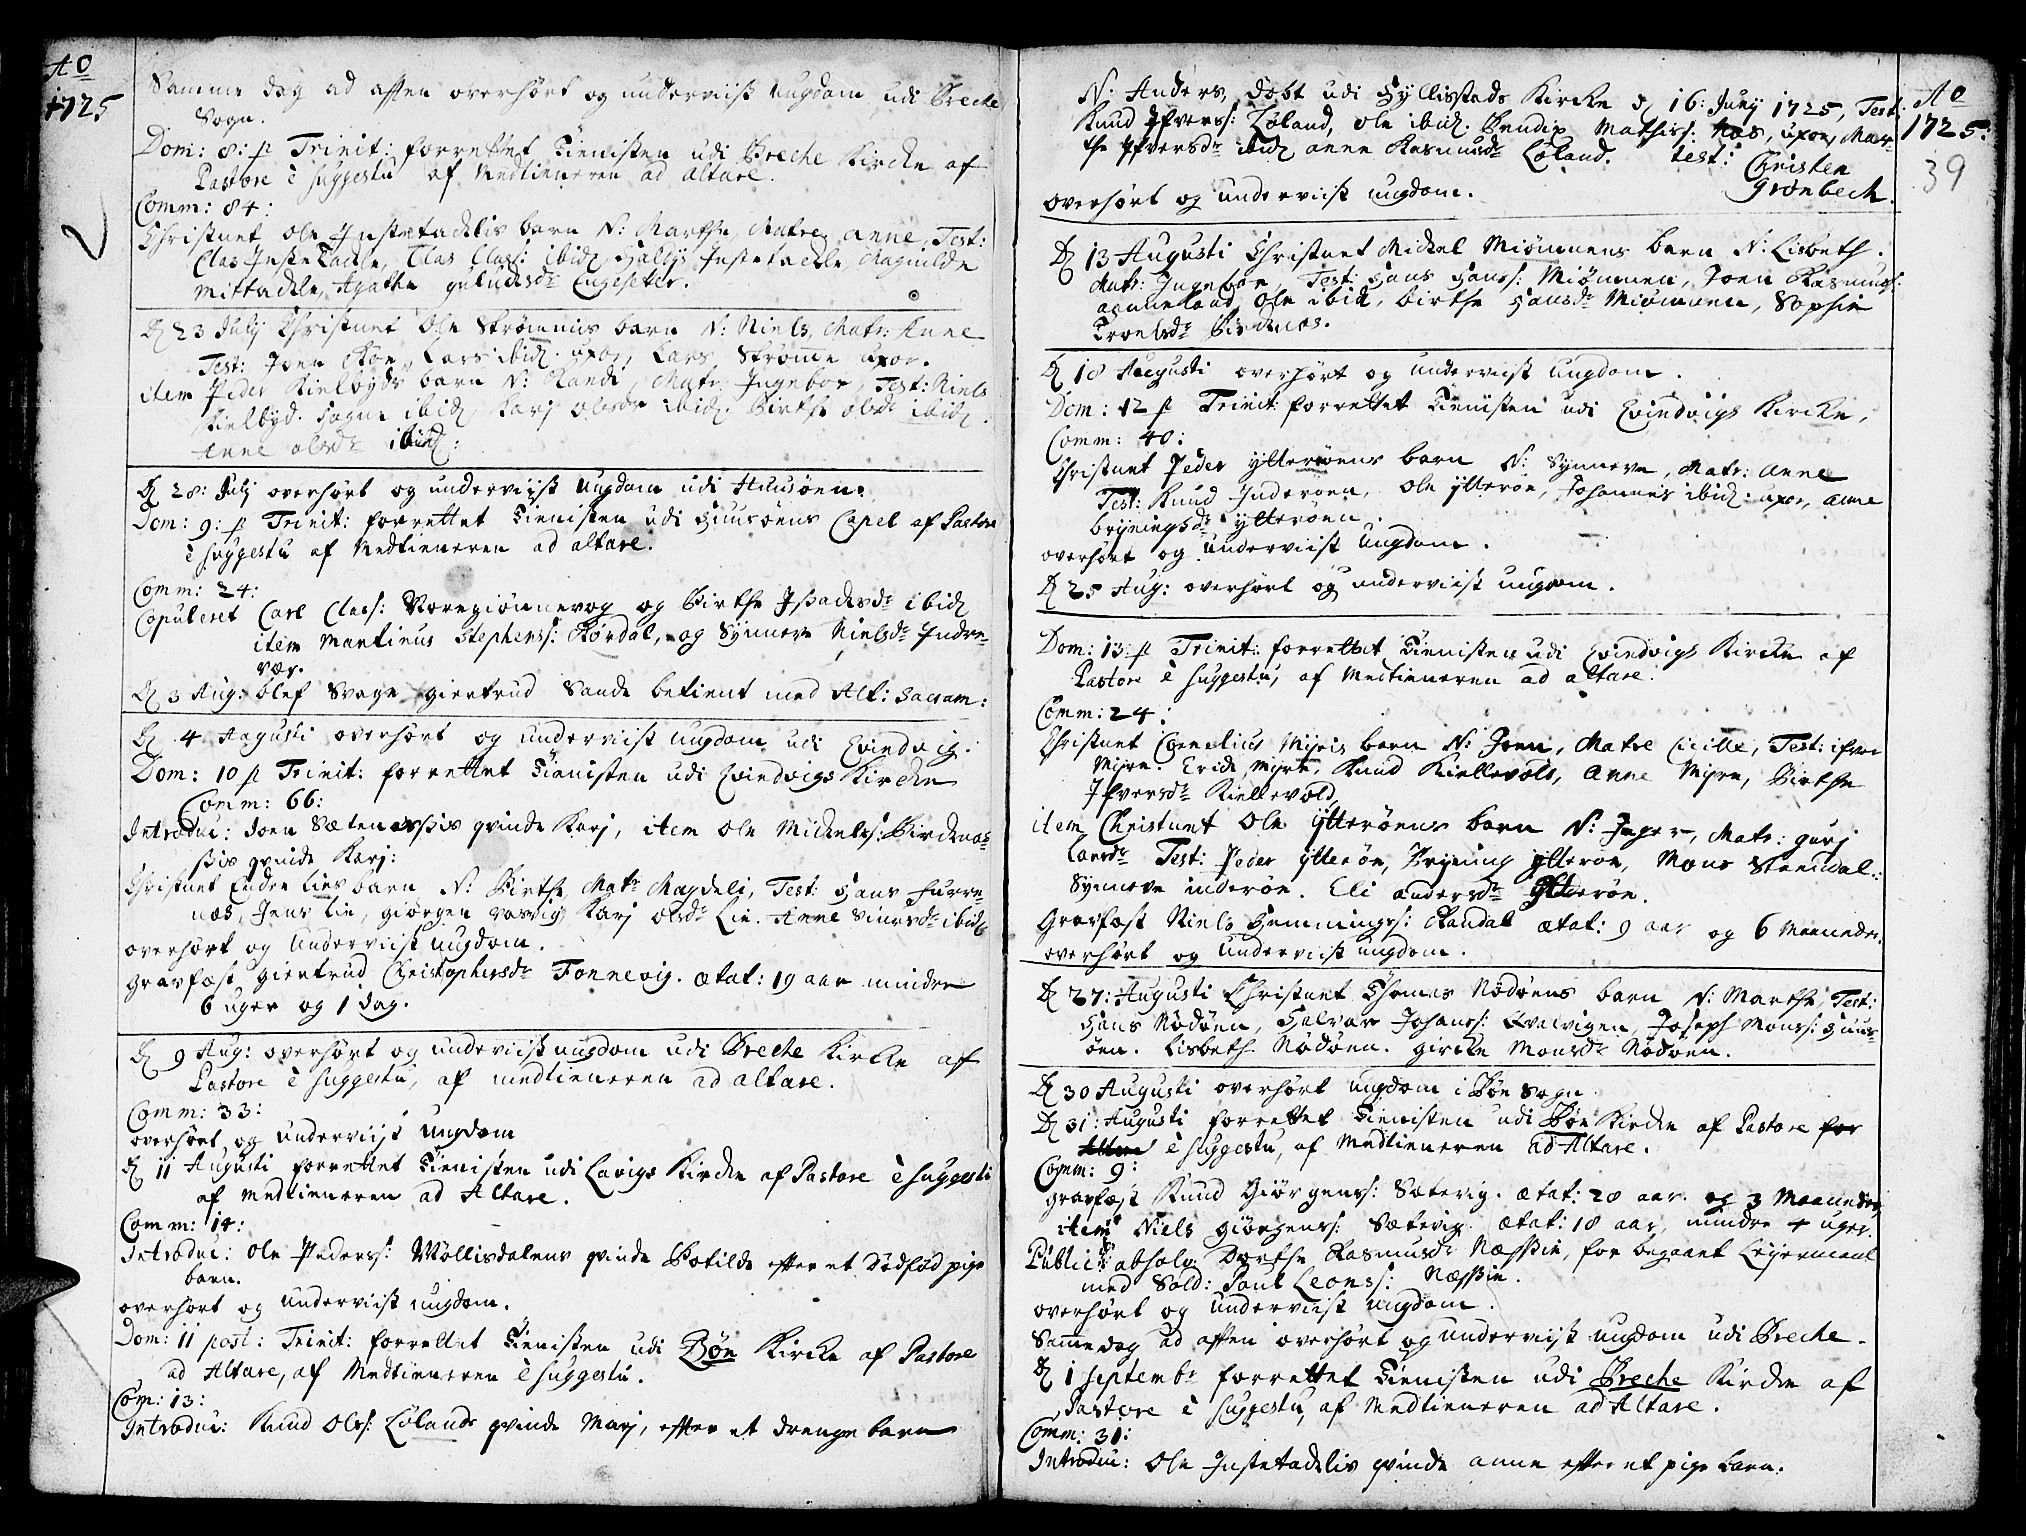 Ao
1725
Samme dag ad afften overhørt og underviist ungdom udi Breche
Sogn.
Dom: 8: p Trinit: forrettet Tienisten udi Breche Kircke af
Pastore è suggestu af Medtieneren ad altare.
Comm: 84:
Christnet Ole Instetackelis barn N: Marthe, Matre anne, Test:
Clas Instetackle, Clas Clas: ibid, Instetackle, Magnilde
Mittackle, Agathe Engesetter.
D 23 July Christnet Ole Strømmis barn N: Niels, Matr: Anne
Test: Joen Lars ibid: uxor, Lars Strømme uxor.
item Peder Kielbyds barn N: Randi, Matr: Ingebor, Test: Niels
Kielbyd. ibid Karj olsdr ibid. Birthe olsdr ibid.
Anne olsdr ibid:
D 28: July overhørt og underviist ungdom udi Huusøen.
Dom: 9: p Trinit: forrettet Tienisten udi Huusøens Capel af Pastore
è suggestu af Medtieneren ad altare.
Comm: 24:
Copuleret Carl Clas: og Birthe Isackdr ibid
item Martinus Stephens: Rørdal, og Synneve Nielsdr Indre-
vær.
D 3 Aug: Olef Svage giertrud Sande betient med Alt: Sacram:
D 4 Augusti overhørt og underviist ungdom udi Evindvig.
Dom: 10 p Trinit: forrettet Tienisten udi Evindvigs Kircke
Comm: 66:
Introduc: Joen qvinde Karj, item Ole Mickels: Birckenæs
qvinde Karj:
Christnet Endre Lies barn N: Birthe, Matr Magdeli, Test: Hans Furre-
næs, Jens Lie, giørgen Karj olsdr Lie. Anne ibid
overhørt og underviist ungdom.
gravfæst giertrud Christophersdr Fonnevig. ætat: 19 aar mindre
6 uger og 1 dag.
D 9 Aug: overhørt og underviist ungdom udi Breche Kircke af
Pastore è suggestu, af medtieneren ad altare.
Comm: 33:
overhørt og underviist ungdom
D 11 Augusti forrettet Tienisten udi Lavigs Kircke af Pastore è suggestu
af medtieneren ad Altare.
Comm: 14:
Introduc: Ole Peders: Møllisdalens qvinde Botilde efter et dødfød pige
barn.
overhørt og underviist ungdom.
Dom: 11 post: Trinit: forrettet Tienisten udi Bøe Kircke af Pastore
ad Altare, af Medtieneren è suggestu.
Com: 13:
Introduc: Knud Ols: Lølands qvinde Marj, effter et drenge barn
N: Anders, døbt udi Hyllistads Kircke d 16: Juny 1725, Test:
Knud Ifvers: Løland, Ole ibid: Bendix Mathis: Næs, uxor, Mar-
the Ifversdr ibid anne Rasmusdr Løland. test: Christen
Grønbech.
Ao
1725:
39
overhørt og underviist ungdom.
D 13 Augusti Christnet Mickel Miømmens barn N: Lisbeth.
Matr: Ingebor, Test: Hans Hans: Miømmen, Joen Rasmus:
Ole ibid, birthe Hansdr Miømmen, Sophie
Troelsdr Birckenæs.
D 18 Augusti overhørt og underviist ungdom.
Dom: 12 p Trinit: forrettet Tienisten udi Evindvigs Kircke,
Comm: 40:
Christnet Peder ytterøens barn N: Synneve, Matr: Anne
Test: Knud Inderøen, Ole ytterøe, Johannes ibid: uxor, anne
brynings dr ytterøen.
overhørt og underviist ungdom.
D 25 Aug: overhørt og underviist ungdom.
Dom: 13: p Trinit: forrettet Tienisten udi Evindvigs Kircke af
Pastore è suggestu, af Medtieneren ad altare.
Comm: 24:
Christnet Cornelius Myris barn N: Joen, Matre Cicille, Test: ifver
Myre. Erick Myre, Knud Kiellevold, Anne Myre, Birthe
Ifversdr Kiellevold.
item Christnet Ole ytterøens barn N: Inger, Matr: gurj
larsdr Test: Peder ytterøe, Bryning ytterøe, Mons Stendal:
Synneve inderøe. Eli andersdr ytterøe.
Gravfæst Niels Hemmings: Randal ætat: 9 aar og 6 Maaneder.
overhørt og underviist ungdom.
D 27: Augusti Christnet Thomas Nødøens barn N: Marthe, Test:
Hans Nødøen, Halvar Johans: Qvalvigen, Joseph Mons: Huus-
øen. Lisbeth Nødøen. giricke Monsdr Nødøen.
D 30 Augusti overhørt ungdom i Bøe Sogn
D 31: Augusti forrettet Tienisten udi Bøe Kircke af Pastore for
Altare è suggestu, af Medtieneren ad Altare.
Comm: 9:
gravfæst Knud Giørgens: Sætevig. ætat: 20 aar og 3 Maaneder
item Niels giørgens: Sætevig. ætat: 18 aar, mindre 4 uger.
Public: absolv: Dorthe Rasmusdr Næssie, for begaaet Leyermaal
med Sold: Poul Leons: Næssie.
overhørt og underviist ungdom.
Samme dag ad afften overhørt og underviist ungdom udi Breche.
D 1 Septembr forrettet Tienisten udi Breche Kircke af
Pastore è suggestu, af Medtieneren ad Altare.
Comm: 31:
Introduc: Ole Instetackelis qvinde anne effter et pige barn.